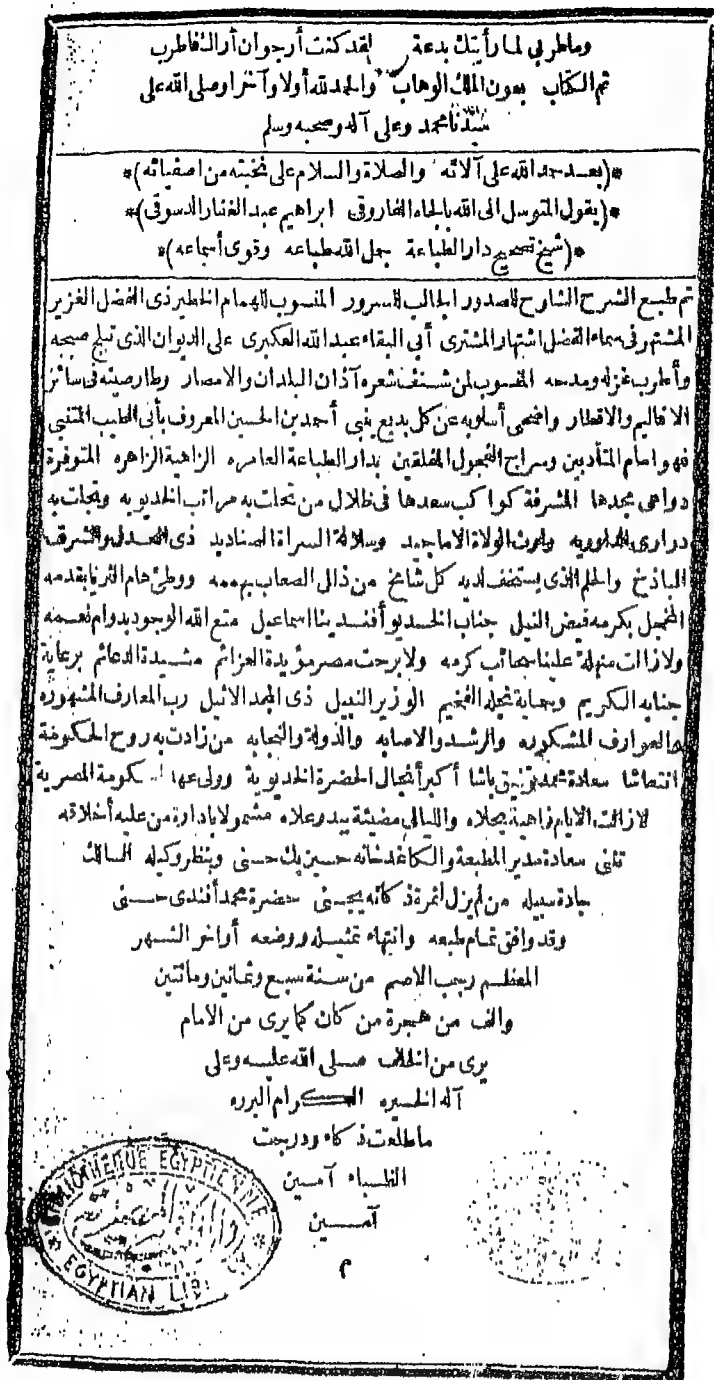 وماطربي لمارأيتك بدعة لقدكنت أرجوان أراك فاطرب
تم الكتاب بعون الملك الوهاب والحمدلله أولا وآخرا وصلى الله على
سيدنا محمد وعلى آله وصحبه وسلم
*(بعد حمدالله على آلائه والصلاة والسلام على نخبته من اصفيائه)*
*(يقول المتوسل الى الله بالجاه الفاروقى ابراهيم عبدالغفار الدسوقى)*
*(شيخ تصحيح دارالطباعة جمل الله طباعه وقوى أسماعه)*
تم طبع الشرح الشارح للصدور الجالب للسرور المنسوب للهمام الخطير ذى الفضل الغزير
المشتهر فى سماء الفضل اشتهار المشترى أبى البقاء عبدالله العكبرى على الديوان الذى تبلج صبحه
وأطرب غزله ومدحه المنسوب لمن شنف شعره آذان البلدان والامصار وطار صيته فى سائر
الاقاليم والاقطار واضحى أسلوبه عن كل بديع ينبى أحمد بن الحسين المعروف بأبى الطيب المتنبى
فهو امام المتأدبين وسراج الفحول المفلقين بدار الطباعة العامره الزاهية الزاهره المتوفرة
دواعى مجدها المشرقة كواكب سعدها فى ظلال من تحلت به مراتب الخديويه وتجلت به
دوارى الداوريه وارث الولاة الاماجيد وسلالة السراة الصناديد ذى العدل والشرف
الباذخ والحلم الذى يستخف لديه كل شامخ من ذلل الصعاب بهممه ووطئ هام الثريا بقدمه
المخجل بكرمه فيض النيل جناب الخديو أفندينا اسماعيل متع الله الوجود بدوام نعمه
ولا زالت منهلة علينا سحائب كرمه ولا برحت مصر مؤيدة العزائم مشيدة الدعائم برعاية
جنابه الكريم وبحماية نجله الفخيم الوزير النبيل ذى المجد الاثيل رب المعارف المشهوره
والعوارف المشكوره والرشد والاصابه والدولة والنجابه من زادت به روح الحكومة
انتعاشا سعادة محمد توفيق باشا أكبر أنجال الحضرة الخديوية وولى عهد الحكومة المصرية
لا زالت الايام زاهية بحلاه والليالى مضيئة ببدر علاه مشمولا بادارة من عليه أخلاقه
تثنى سعادة مدير المطبعة والكاغدخانه حسين بك حسنى وبنظر وكيله السالك
جادة سبيله من لم يزل لثمرة ذكائه يجتنى حضرة محمد أفندى حسنى
وقد وافق تمام طبعه وانتهاء تمثيله ووضعه أواخر الشهر
المعظم رجب الاصم من سنة سبع وثمانين ومائتين
والف من هجرة من كان كما يرى من الامام
يرى من الخلف صلى الله عليه وعلى
آله الخيره الكرام البرره
ما طلعت ذكاء ودرجت
الظباء آمين
آمين
م
BIBLIOTHEQUE EGYPTIENNE
EGYPTIAN